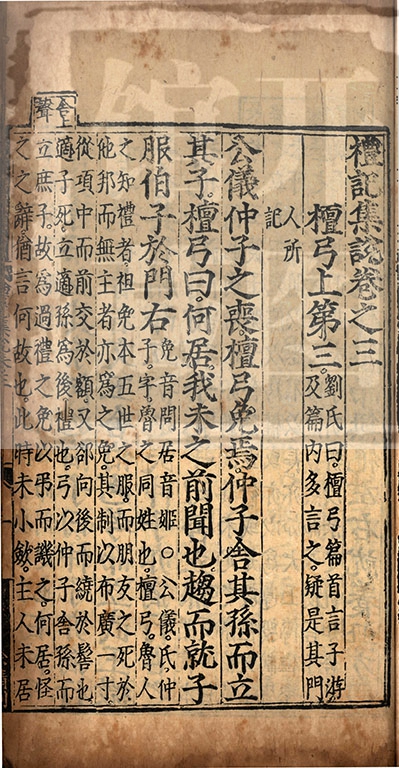 禮記集說卷之三
檀弓上第三
劉氏曰。檀弓篇首言子游
及篇內多言之。疑是其門
人所
記
公儀仲子之喪檀弓免焉仲子舍其孫而立
其子。檀弓曰。何居。我未之前聞也。趨而就子
服伯子於門右
免音問居音姬○公儀。氏仲
子。字。魯之同姓也。檀弓。魯人
之知禮者袒免本五世之服。而朋友之死於
他邦而無主者亦為之免。其制以布廣一寸。
從項中而前交於額。又卻向後而繞於髻也。
適子死。立適孫為後禮也。弓以仲子舍孫而
立庶子。故為過禮之免以弔而譏之。何居。怪
之之辭。猶言何故也。此時未小斂。主人未居
舍上
聲